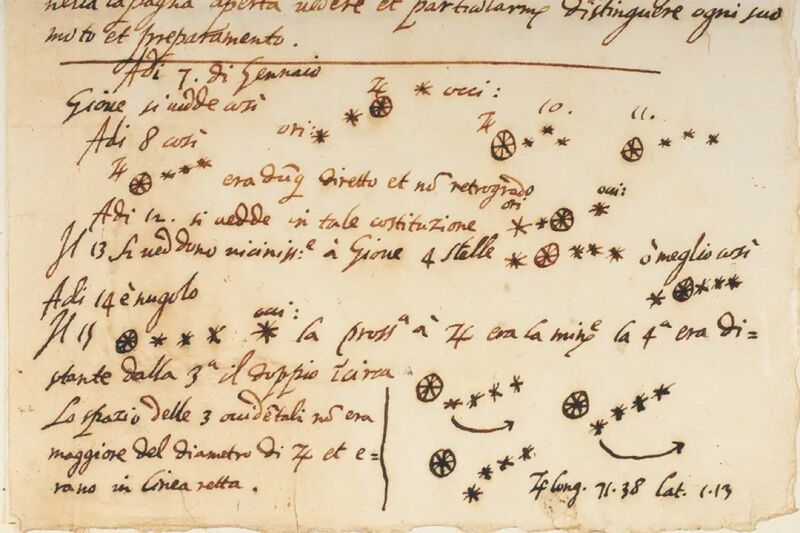 nella capagna aperta vedere et particularmᵉ distinguere ogni suo
moto et preparamento.
Adi 7. di Gennaio
Giove si vedde così ♃ occi:
Adi 8 così ori: ♃ 10. 11.
♃ era dūq̨ diretto et nō retrogrado
Adi 12. si vedde in tale costituzione ori occi:
Il 13 si veddono viciniss.ᵉ à Giove 4 stelle ò meglio così
Adi 14 è nugolo
Il 15 occi: la prossᵃ à ♃ era la minᵉ la 4ᵃ era di=
stante dalla 3ᵃ il doppio īcirca
Lo spazio delle 3 occidētali nō era
maggiore del diametro di ♃ et e=
rano in linea retta.
♃ long. 71.38 lat. 1.13